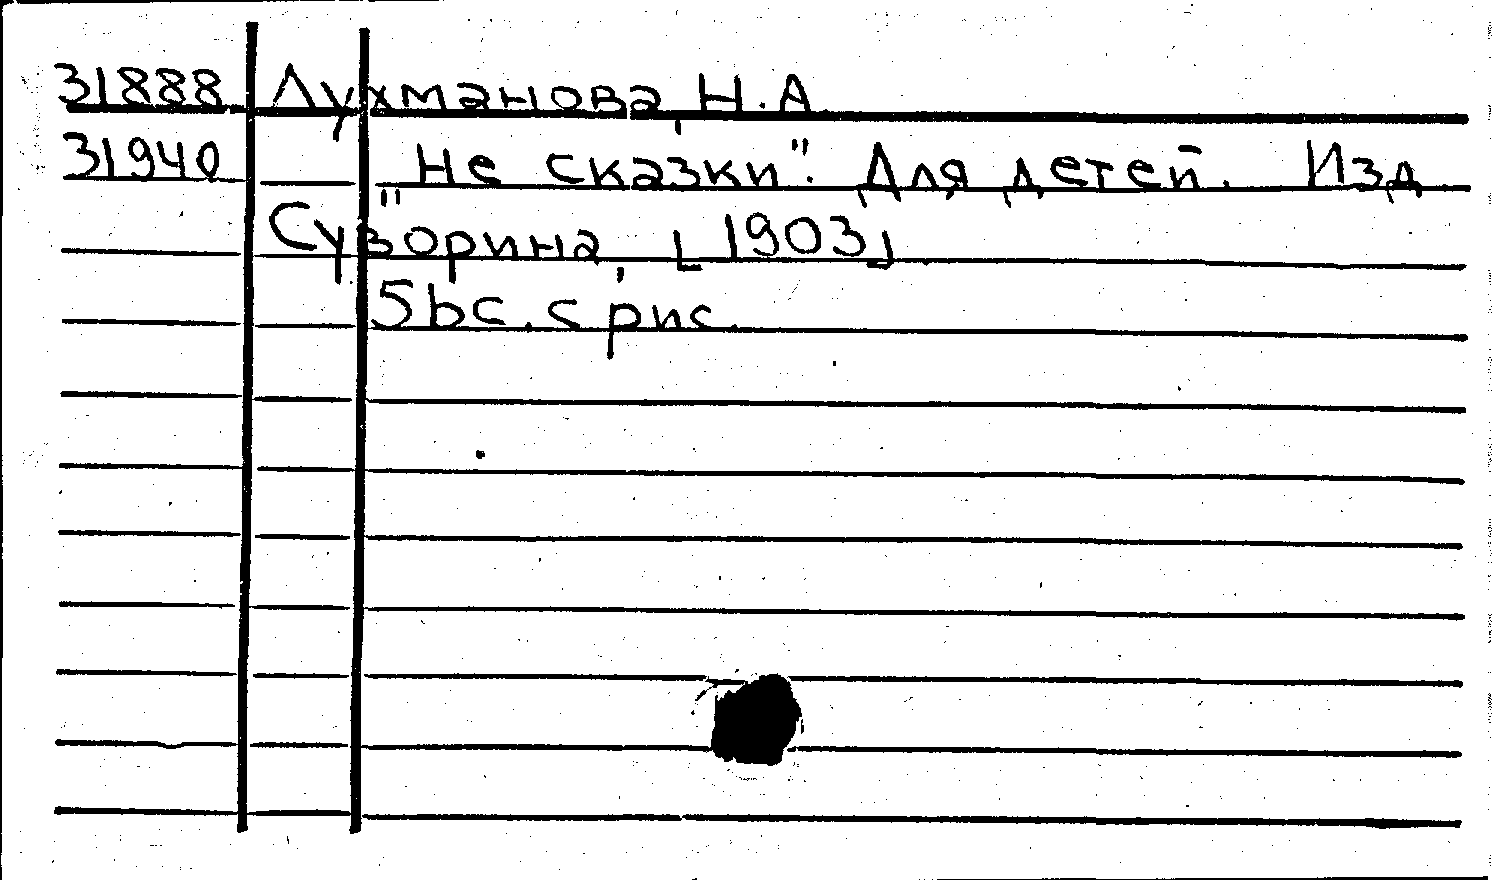 31888 Лухманова, Н.А
31940 "Не сказки". Для детей. Изд
Суворина, [1903]
5bс. с рис.